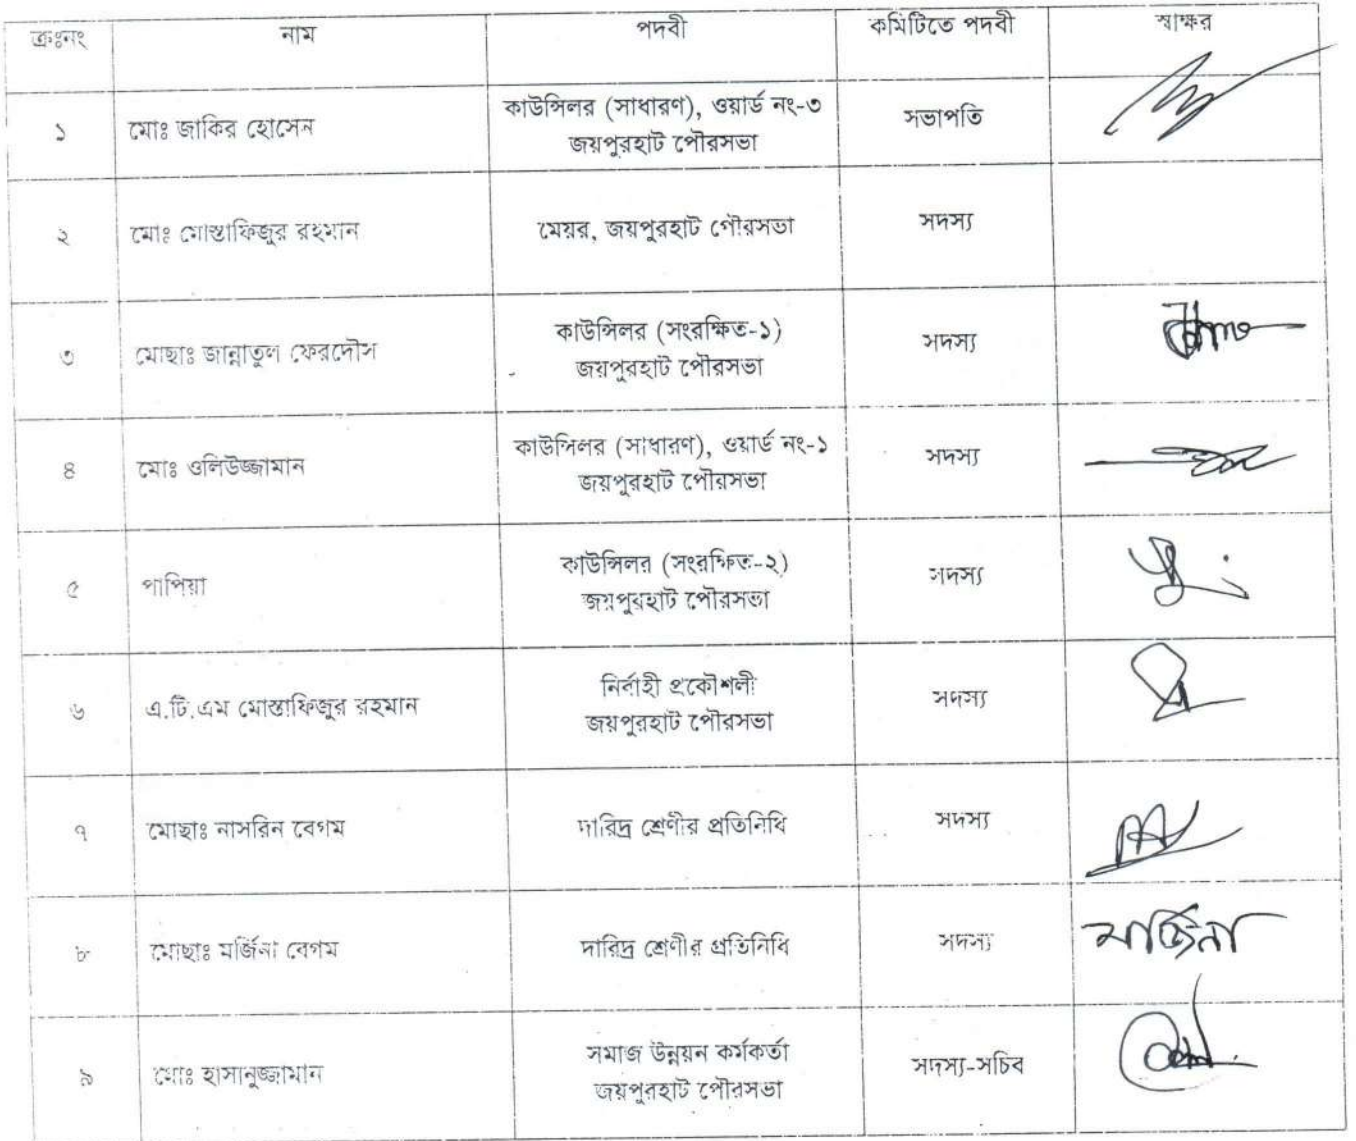 ক্রঃনং নাম পদবী কমিটিতে পদবী স্বাক্ষর
১ মোঃ জাকির হোসেন কাউন্সিলর (সাধারণ), ওয়ার্ড নং-৩ সভাপতি
জয়পুরহাট পৌরসভা
২ মোঃ মোস্তাফিজুর রহমান মেয়র, জয়পুরহাট পৌরসভা সদস্য
৩ মোছাঃ জান্নাতুল ফেরদৌস কাউন্সিলর (সংরক্ষিত-১) সদস্য
জয়পুরহাট পৌরসভা
৪ মোঃ ওলিউজ্জামান কাউন্সিলর (সাধারণ), ওয়ার্ড নং-১ সদস্য
জয়পুরহাট পৌরসভা
৫ পাপিয়া কাউন্সিলর (সংরক্ষিত-২) সদস্য
জয়পুরহাট পৌরসভা
৬ এ.টি.এম মোস্তাফিজুর রহমান নির্বাহী প্রকৌশলী সদস্য
জয়পুরহাট পৌরসভা
৭ মোছাঃ নাসরিন বেগম দারিদ্র শ্রেণীর প্রতিনিধি সদস্য
৮ মোছাঃ মর্জিনা বেগম দারিদ্র শ্রেণীর প্রতিনিধি সদস্য মার্জিনা
৯ মোঃ হাসানুজ্জামান সমাজ উন্নয়ন কর্মকর্তা সদস্য-সচিব
জয়পুরহাট পৌরসভা